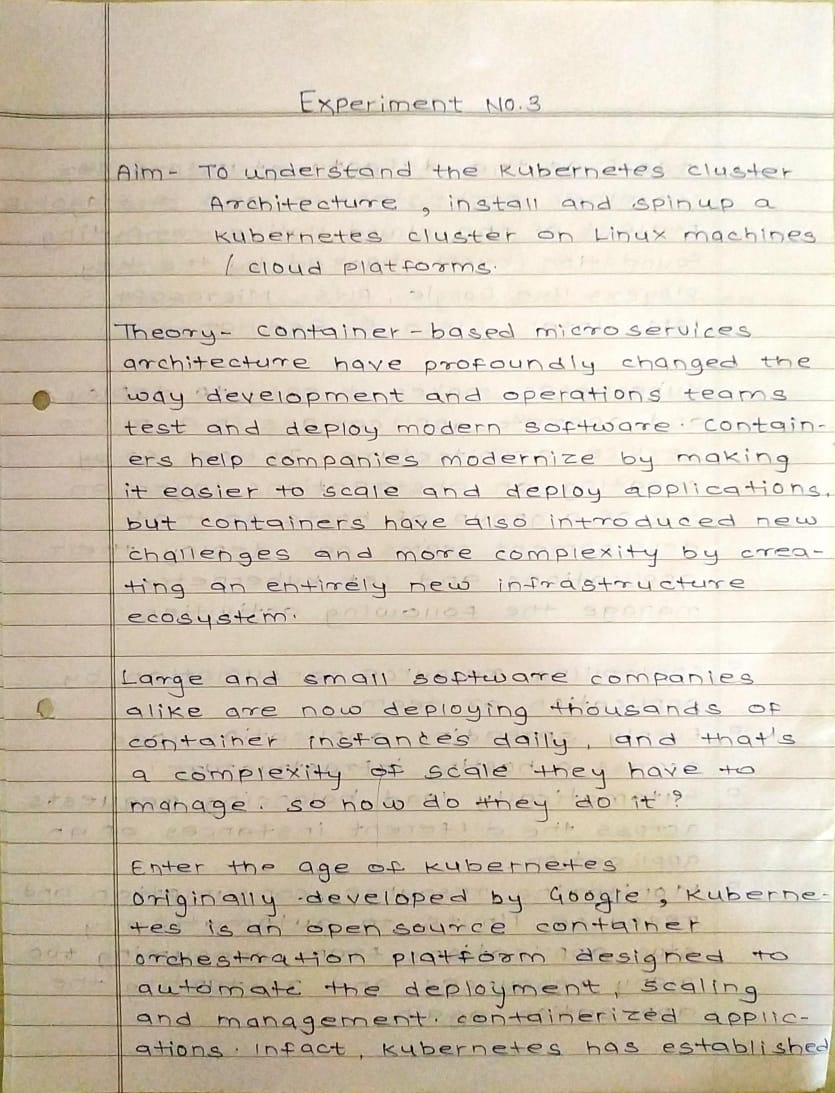 Experiment No.3
Aim- To understand the Kubernetes cluster
Architecture, install and spinup a
Kubernetes cluster on Linux machines
/ cloud platforms.
Theory- container-based microservices
architecture have profoundly changed the
way development and operations teams
test and deploy modern software. Contain-
ers help companies modernize by making
it easier to scale and deploy applications,
but containers have also introduced new
challenges and more complexity by crea-
ting an entirely new infrastructure
ecosystem.
Large and small software companies
alike are now deploying thousands of
container instances daily, and that's
a complexity of scale they have to
manage. so how do they do it?
Enter the age of kubernetes
Originally developed by Google, Kuberne-
tes is an open source container
orchestration platform designed to
automate the deployment, scaling
and management. containerized applic-
ations. Infact, Kubernetes has established